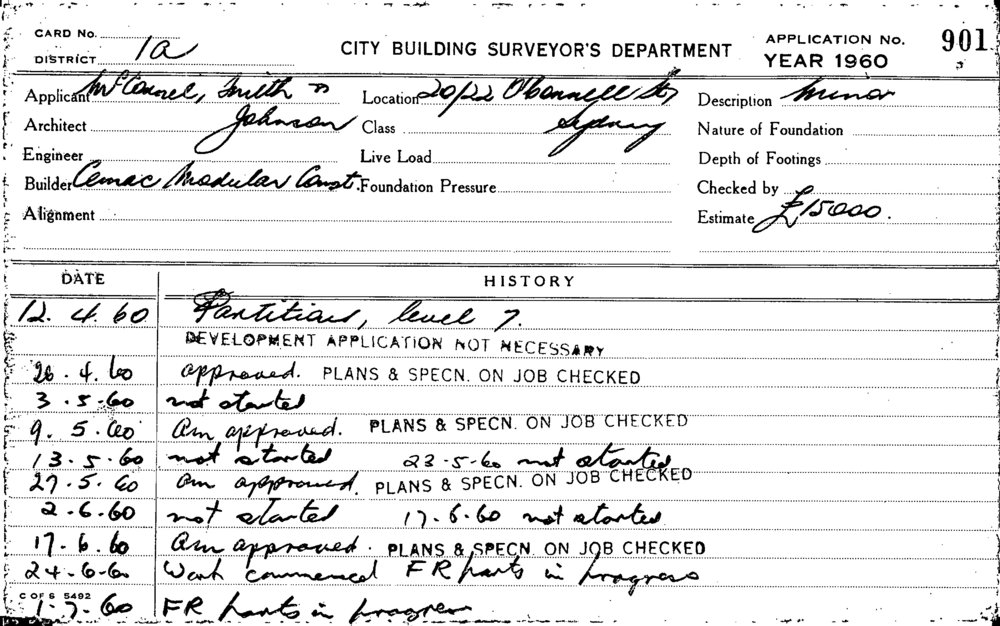 CARD No.
DISTRICT 1a
CITY BUILDING SURVEYOR'S DEPARTMENT
APPLICATION No. 901
YEAR 1960
Applicant McConnel, Smith &
Johnson
Location 20/22 O'Connell St,
Sydney
Description Minor
Architect
Class
Nature of Foundation
Engineer
Live Load
Depth of Footings
Builder Cemac Modular Const.
Foundation Pressure
Checked by
Alignment
Estimate £15000.
DATE HISTORY
12. 4. 60 Partitions, level 7.
DEVELOPMENT APPLICATION NOT NECESSARY
26. 4. 60 approved. PLANS & SPECN. ON JOB CHECKED
3. 5. 60 not started
9. 5. 60 Am approved. PLANS & SPECN. ON JOB CHECKED
13. 5. 60 not started 23-5-60 not started
27. 5. 60 Am approved. PLANS & SPECN. ON JOB CHECKED
2. 6. 60 not started 17. 6. 60 not started
17. 6. 60 Am approved. PLANS & SPECN. ON JOB CHECKED
24-6-60 Work commenced FR parts in progress
C OF S 5492
1. 7. 60 FR parts in progress